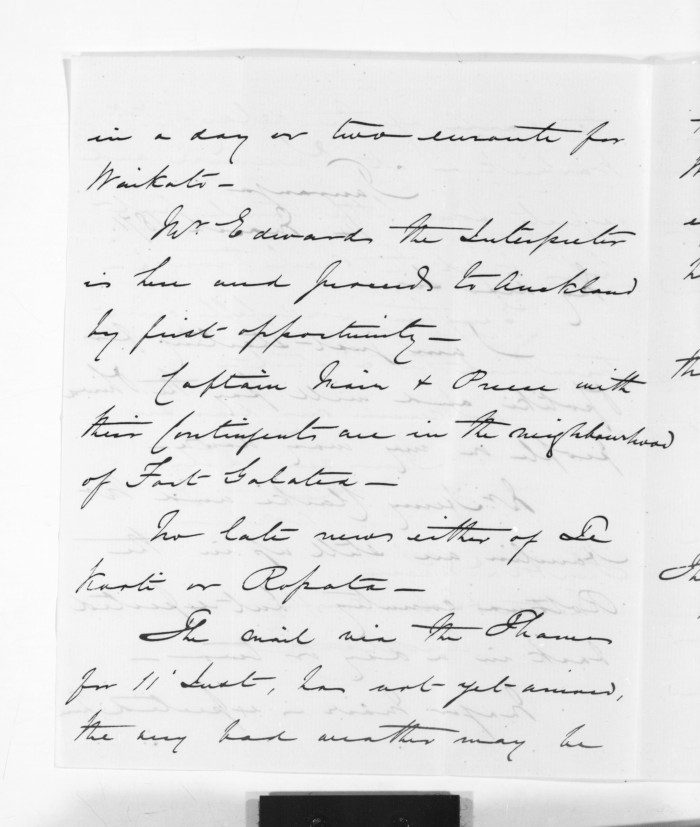 in a day or two enroute for
Waikato —
Mr. Edwards the Interpreter
is here and proceeds to Auckland
by first opportunity —
Captain Mair & Preece with
their Contingents are in the neighbourhood
of Fort Galatea —
No late news either of Te
Kooti or Ropata —
The mail via the Thames
for 11' Inst, has not yet arrived,
the very bad weather may be